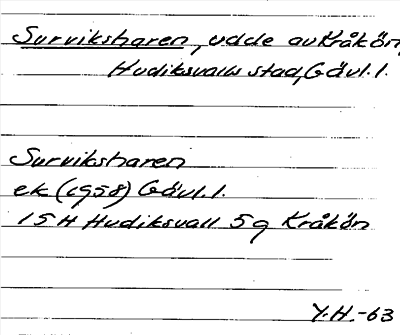 Surviksharen, udde av Kråkön,
Hudiksvalls stad, Gävl.l.
Surviksharen
ek (1958) Gävl.l.
15H Hudiksvall 5g Kråkön
Y.H.-63